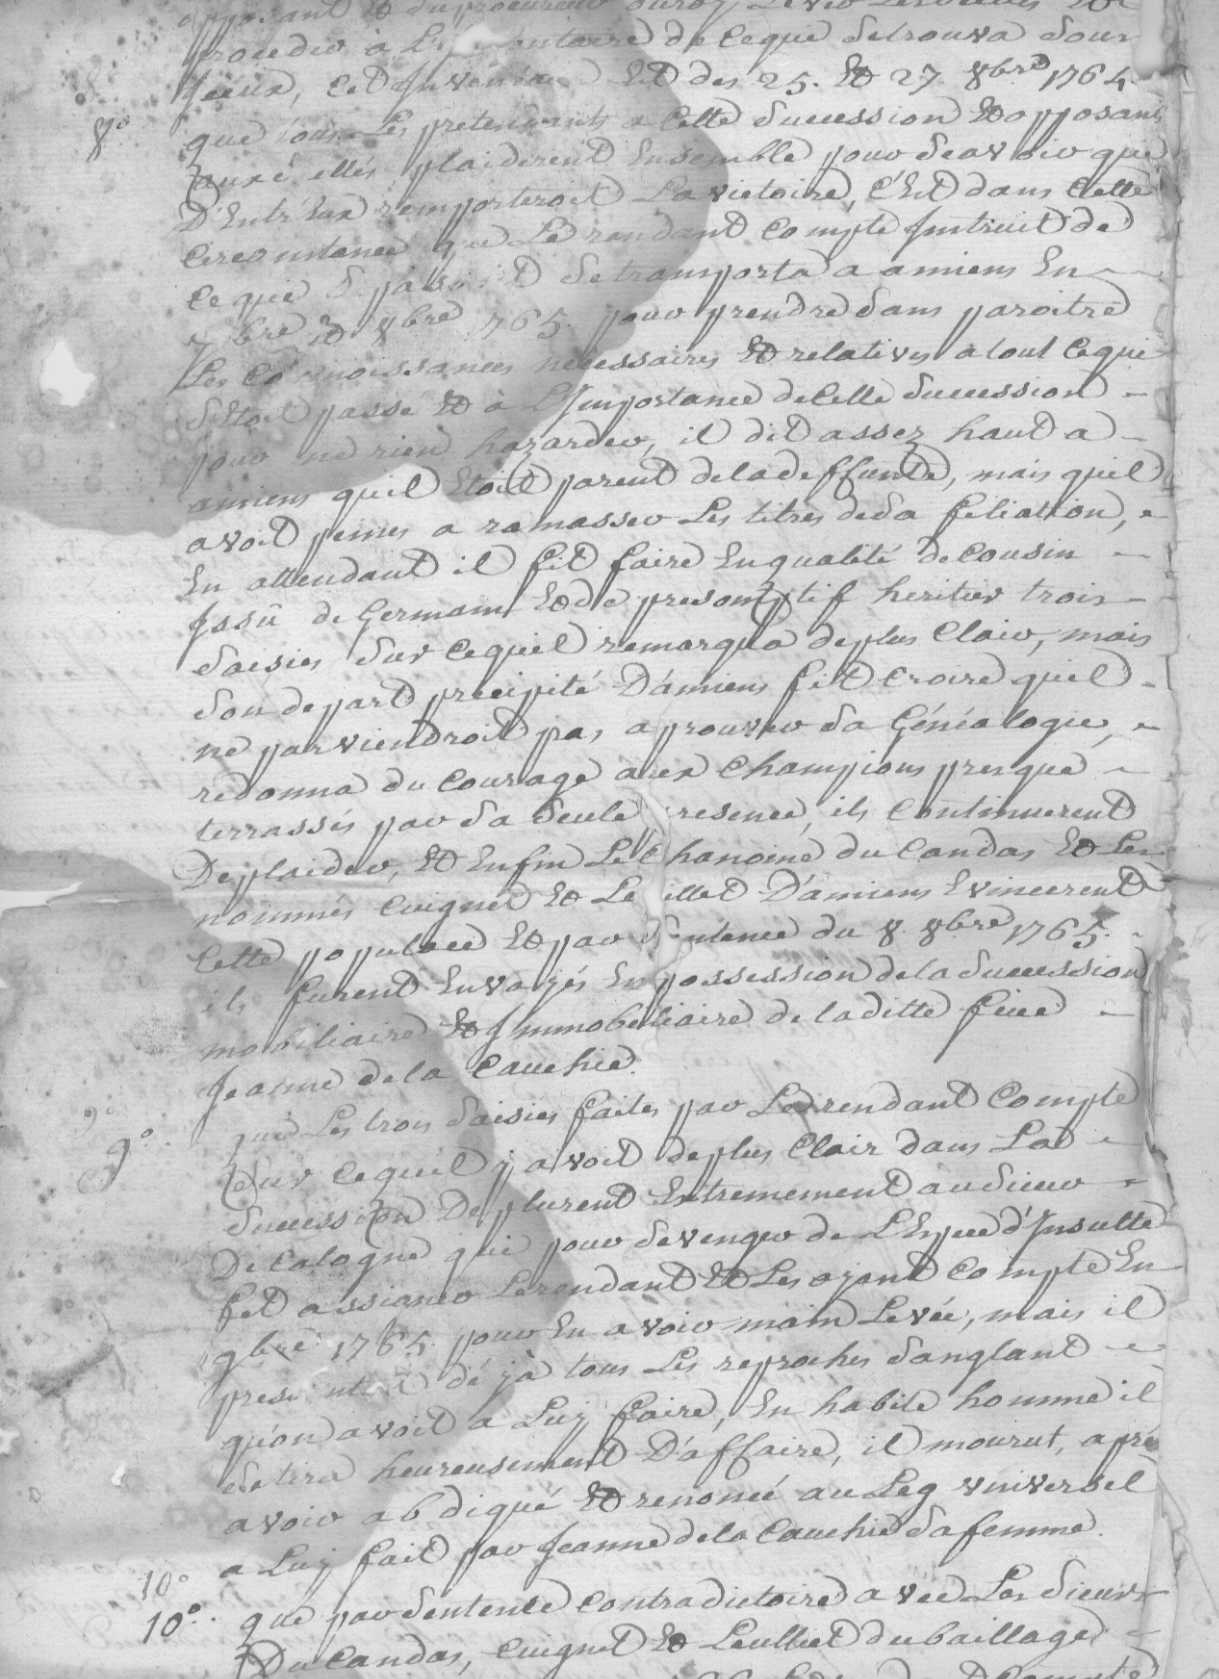 opposant Et du procureur du roy Levér Les scellés Et
proceder à L'inventaire de ceque Setrouva Sous
Jceux, Cet Inventaire Est des 25. Et 27. 8bre 1764.
8° que tous Les pretendants a Cette Succession Et opposans
aux scellés plaiderent Ensemble pour Scavoir que
D'Entr'Eux remporteroit La victoire, C'Est dans Cette
Circonstance que Le rendant Compte Instruit de
Ce qui S passoit Se transporta a amiens En
7bre Et 8bre 1765. pour prendre Sans paroitre
Les Connoissances necessaires Et relatives a tout Cequi
S'Etoit passé Et à L'Importance de Cette Succession
pour ne rien hazarder, il dit assez haut a
amiens quil Etoit parent de la deffunte, mais quil
avoit peines a ramasser Les titres de Sa filiation,
En attendant il fit faire En qualité de Cousin
Jssû de Germain Et de presomptif heritier trois
Saisies Sur Cequil remarqua de plus Clair, mais
Son depart precipité D'amiens fit Croire quil
ne parviendroit pas a prouver Sa Généalogie,
redonna du Courage aux Champions presque
terrassés par Sa Seule presence, ils Continuerent
De plaider, Et Enfin Le Chanoine du Candas Et Les
nommés Cuignet Et Le illet D'amiens Evincerent
Cette populace Et par Sentence du 8 8bre 1765.
ils furent Envoyés En possession de la Succession
mobiliaire Et Immobiliaire de laditte feüe
Jeanne de la Cauchie.
9° 9° que Les trois Saisies faites par Le rendant Compte
Sur Cequil y avoit de plus Clair dans La
Succession Deplurent Extremement au Sieur
De Calogne qui pour Se venger de L'Espece d'Insulte
fit assigner Le rendant Et Les oyant Compte En
9bre 1765 pour En avoir main Levée, mais il
pressentit déjà tous Les reproches Sanglant
qu'on avoit a Luy faire, En habile homme il
Se tira heureusement D'affaire, il mourut, aprè
avoir abdiqué Et renoncé au Leg universel
a Luy fait par Jeanne de la Cauchie Sa femme.
10° 10° que par Sentence Contradictoire avec Les Sieurs
Du Candas, Cuignet Et Leulliet du baillage